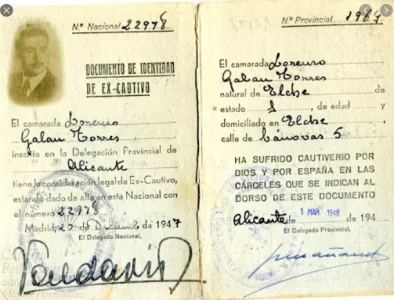 N.º Nacional 22978
DOCUMENTO DE IDENTIDAD
DE EX-CAUTIVO
El camarada Lorenzo
Galan Torres
inscrito en la Delegación Provincial de
Alicante
tiene la consideración legal de Ex-Cautivo,
estando dado de alta en esta Nacional con
el número 22978
Madrid, 20 de Diciembre de 1947
El Delegado Nacional,
N.º Provincial
El camarada Lorenzo
Galan Torres
natural de Elche de
estado , de edad y
domiciliado en Elche
calle de Cánovas 5
HA SUFRIDO CAUTIVERIO POR
DIOS Y POR ESPAÑA EN LAS
CÁRCELES QUE SE INDICAN AL
DORSO DE ESTE DOCUMENTO
Alicante de 1 MAR 1948 de 194
El Delegado Provincial,